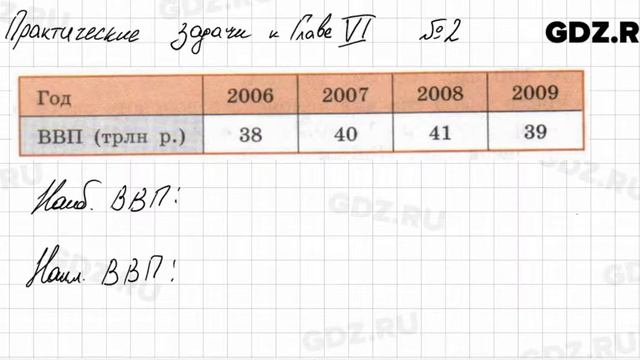 Практические задачи к Главе VI №2
GDZ.R
Год 2006 2007 2008 2009
ВВП (трлн р.) 38 40 41 39
Наиб. ВВП:
GDZ.RU
Наим. ВВП:
GDZ.RU
GDZ.RU